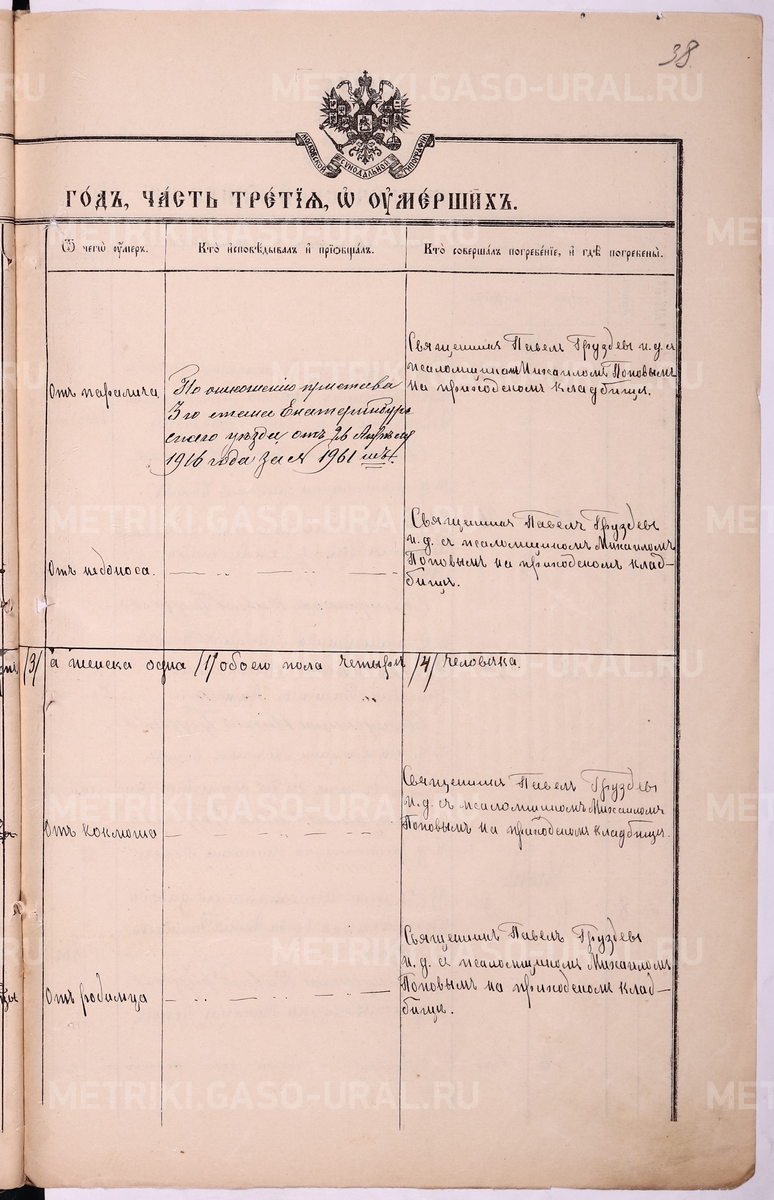 38.
МОСКОВСКОЙ СѴНОДАЛЬНОЙ ТИПОГРАФІИ
ГО́ДЪ, ЧА́СТЬ ТРЕ́ТІѦ, Ѡ҆ ОУ҆МЕ́РШИХЪ.
Ѿ чегѡ̀ оу҆́меръ.
Кто̀ и҆сповѣ́дывалъ и҆ прїѡбща́лъ.
Кто̀ соверша́лъ погребе́нїе, и҆ гдѣ̀ погребены̀.
Отъ паралича
По отношенію пристава
3го стана Екатеринбург
скаго уѣзда, отъ 26 Апрѣля
1916 года за № 1961 мъ.
Священникъ Павелъ Груздевъ и.д. съ
псаломщикомъ Михаиломъ Поповымъ
на приходскомъ кладбищѣ.
Отъ недоноса.
Священникъ Павелъ Груздевъ
и. д. съ псаломщикомъ Михаиломъ
Поповымъ на приходскомъ клад-
бищѣ.
/3/ а женска одна /1/ обоего пола четыре /4/ человѣка.
Отъ коклюша
Священникъ Павелъ Груздевъ
и. д. съ псаломщикомъ Михаиломъ
Поповымъ на приходскомъ кладбищѣ.
Отъ родимца
Священникъ Павелъ Груздевъ
и. д. съ псаломщикомъ Михаиломъ
Поповымъ на приходскомъ клад-
бищѣ.
METRIKI.GASO-URAL.RU